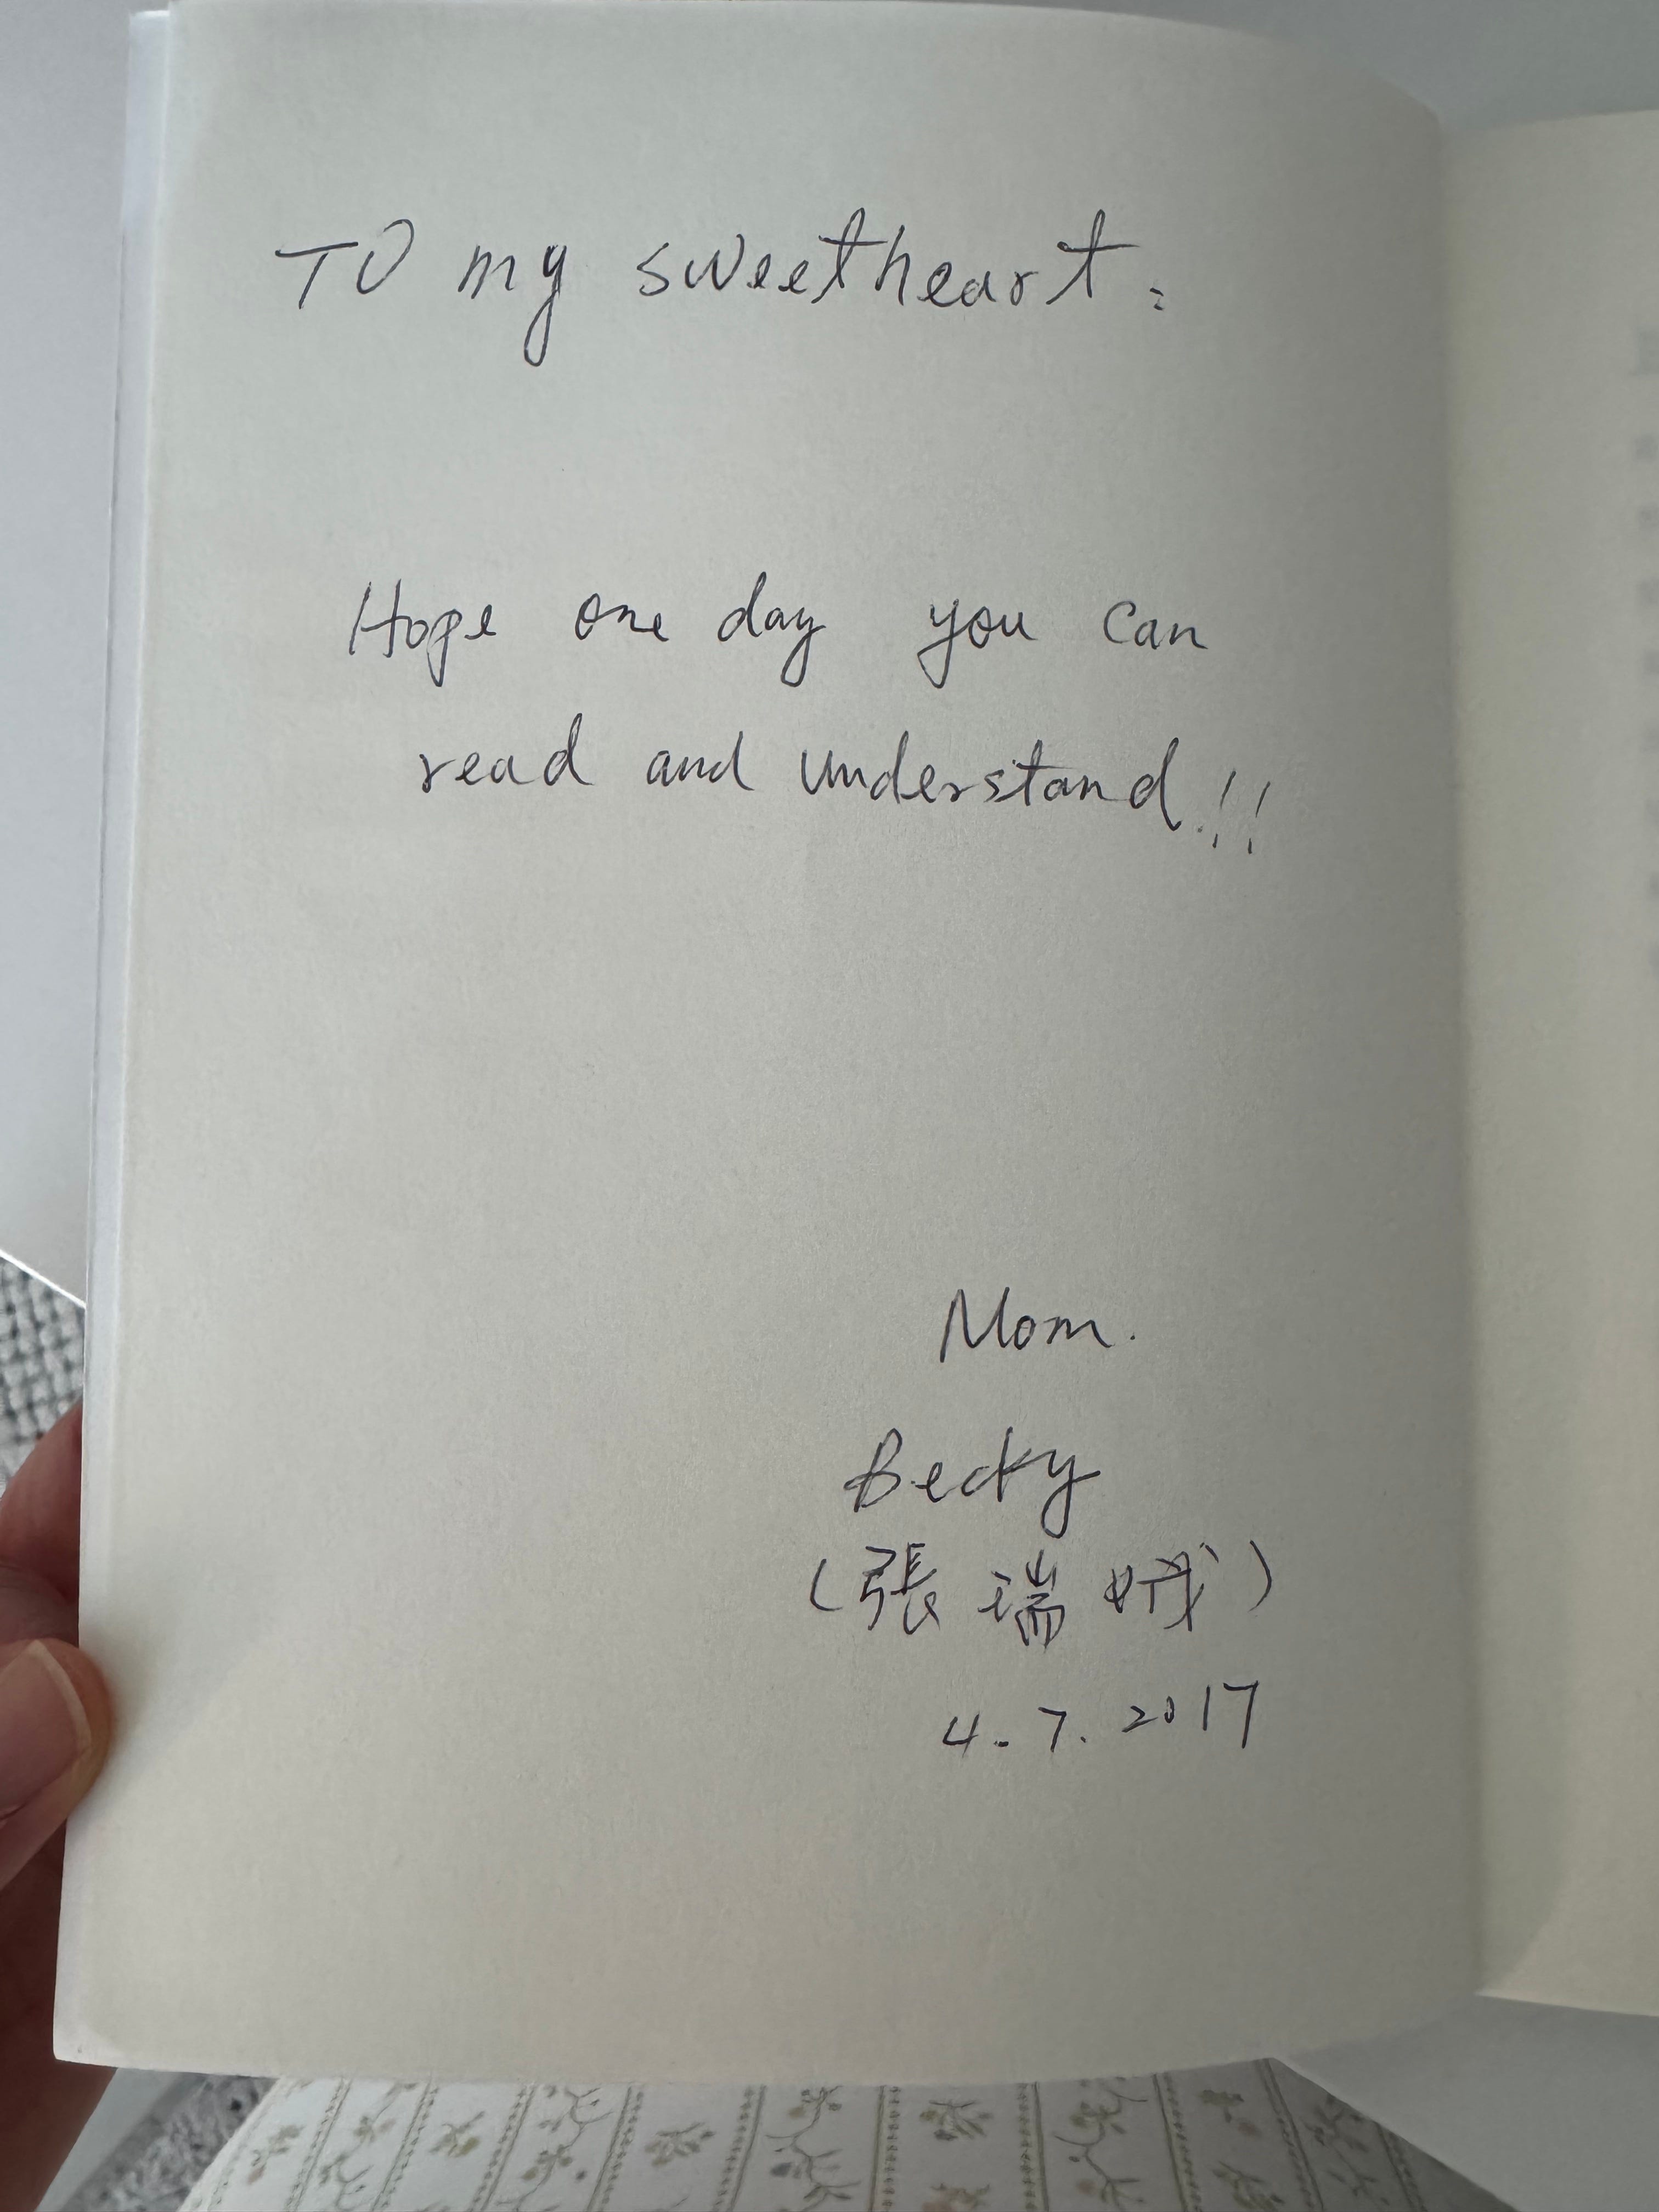 To my sweetheart:
Hope one day you can
read and understand!!
Mom.
Becky
(張瑞娥)
4.7.2017